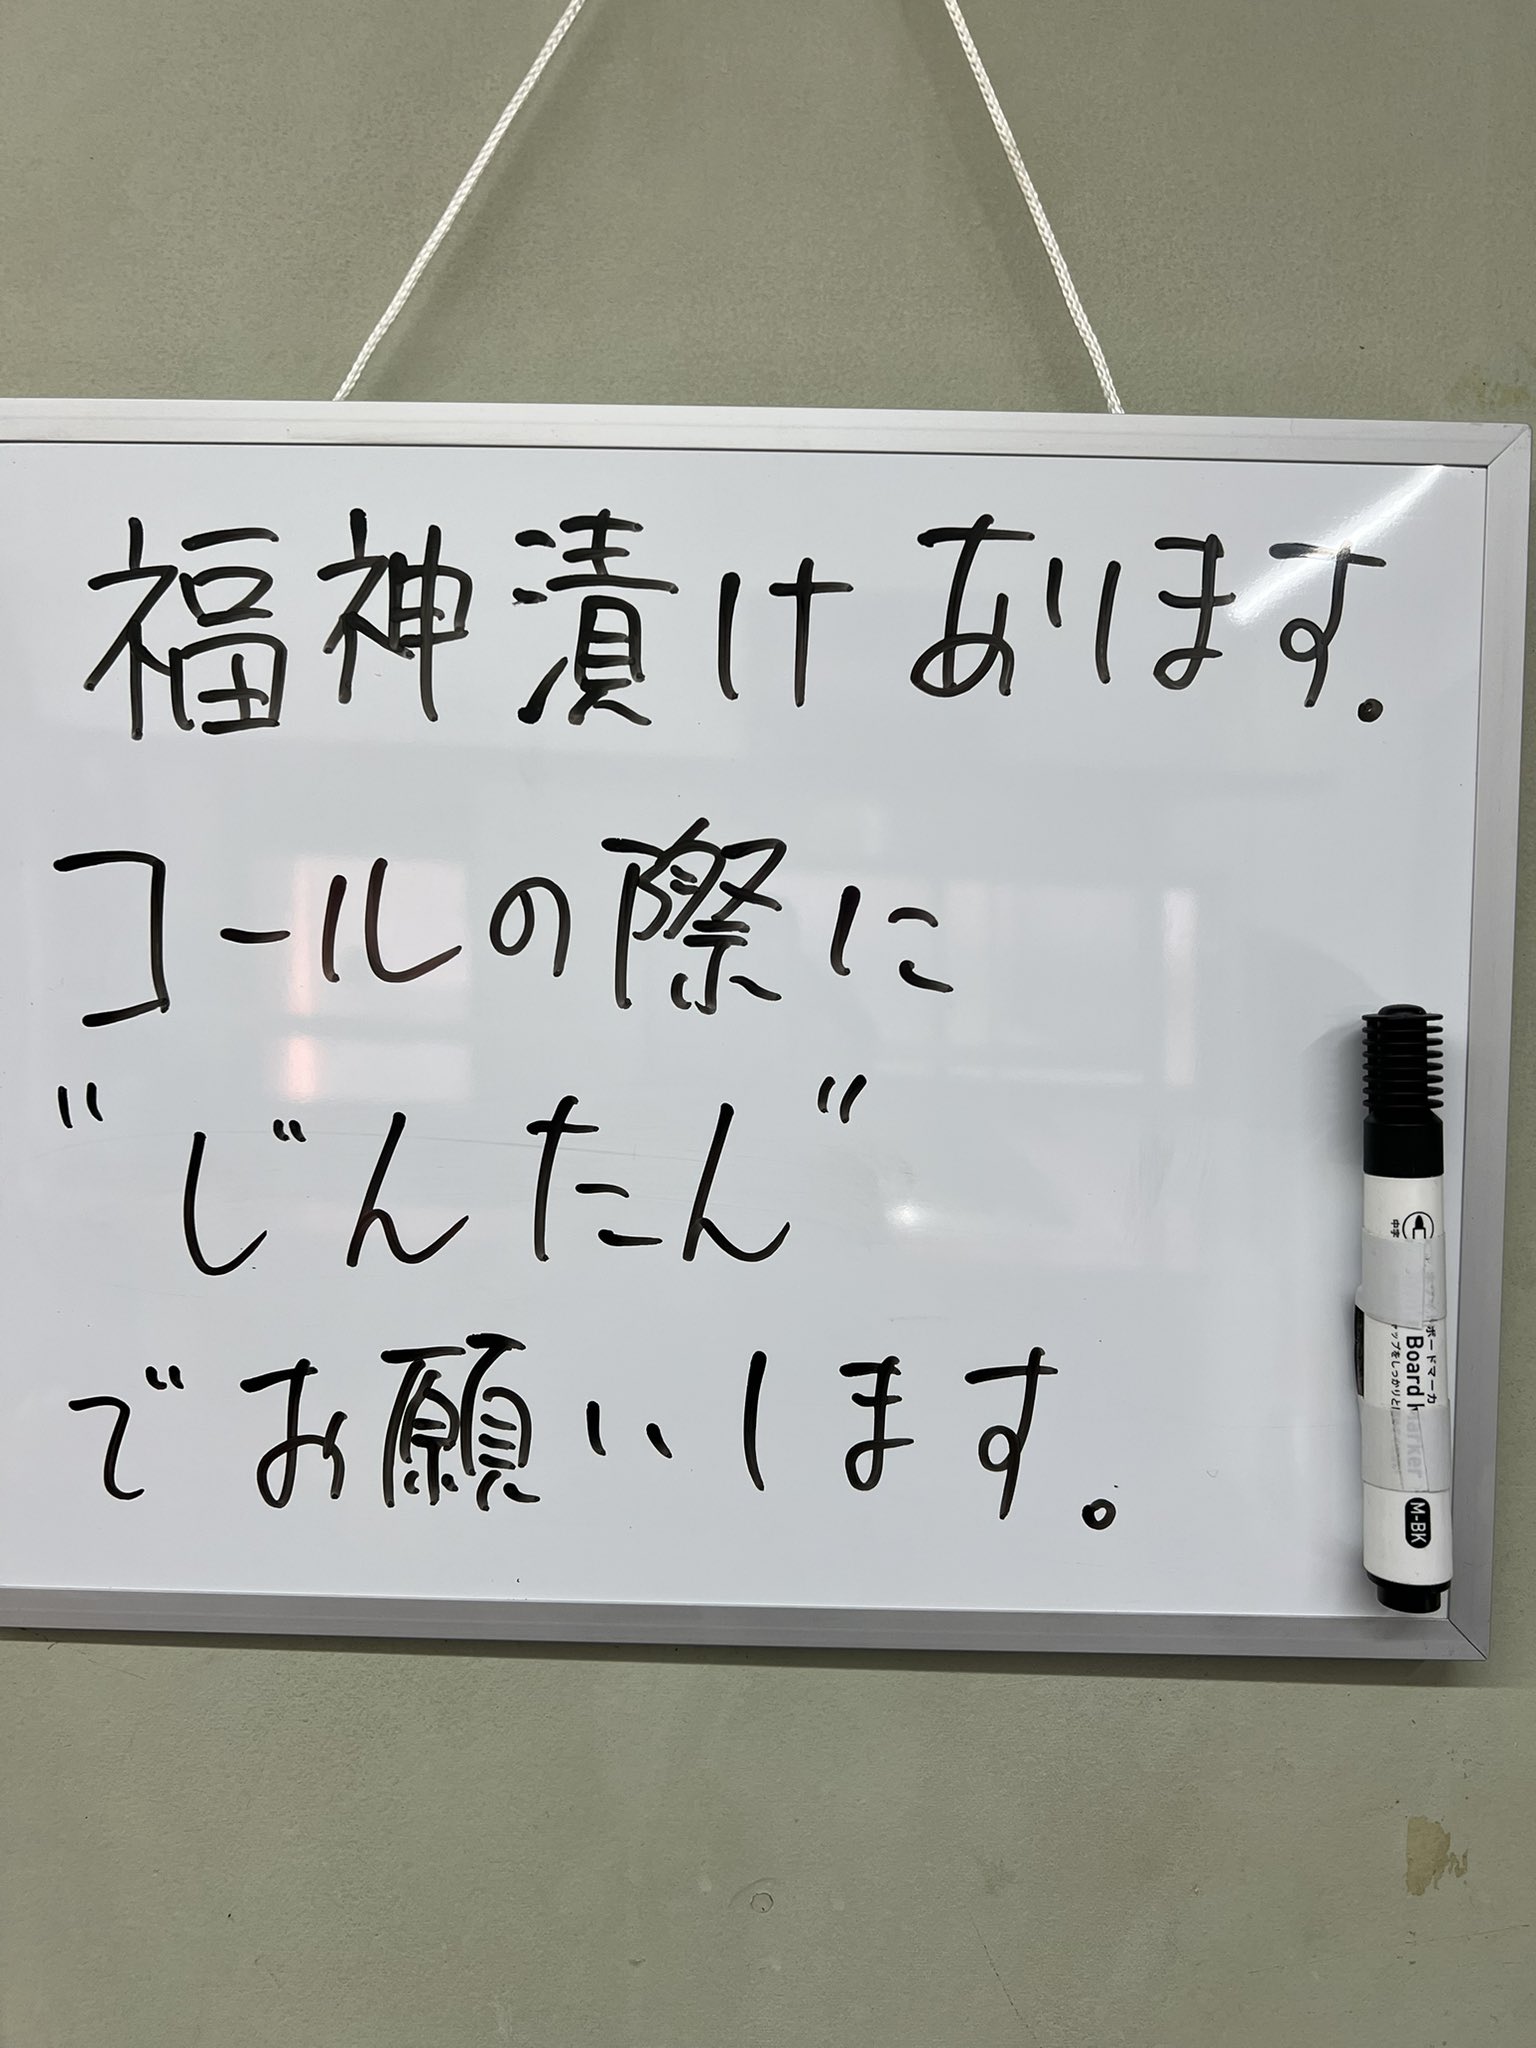 福神漬けあります.
コールの際に
"じんたん"
でお願いします。
中字
ボードマーカ
Board Marker
M-BK